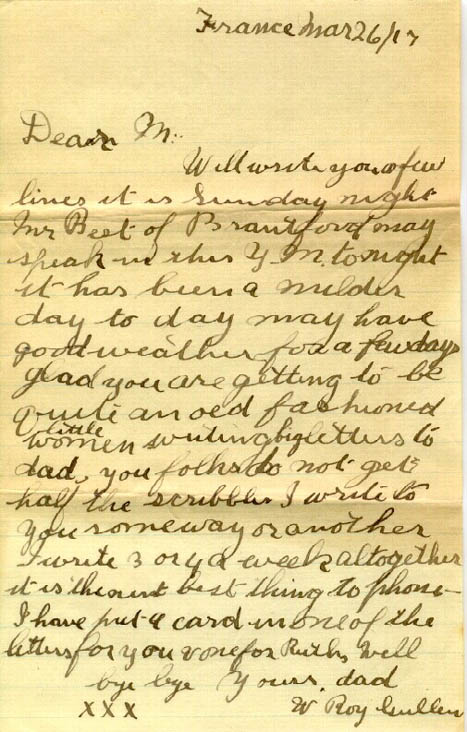 France Mar 26/17
Dear M:
Will write you a few
lines it is Sunday night
Mr Beet of Brantford may
speak in this Y.M. tonight
it has been a milder
day to day may have
good weather for a few days
glad you are getting to be
quite an old fashioned
little
women writing big letters to
dad, you folks do not get
half the scribbles I write to
you someway or another
I write 3 or 4 a week altogether
it is the next best thing to phone
I have put a card in one of the
letters for you & one for Ruth, Well
bye bye Yours, dad
XXX W Roy Gullen